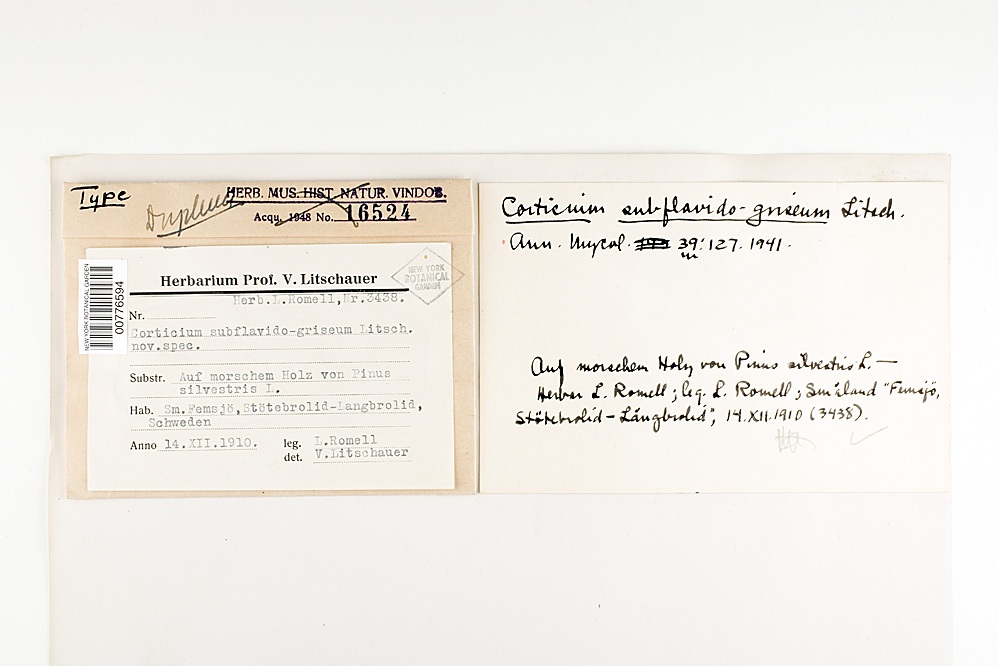 Type
HERB. MUS. HIST. NATUR. VINDOB.
Acqu. 1948 No. 16524
Herbarium Prof. V. Litschauer
NEW YORK
BOTANICAL
GARDEN
NEW YORK BOTANICAL GARDEN
00776594
Herb.L.Romell,Nr.3438.
Nr.
Corticium subflavido-griseum Litsch.
nov.spec.
Substr. Auf morschem Holz von Pinus
silvestris L.
Hab. Sm.Femsjö,Stötebrolid-Langbrolid,
Schweden
Anno 14.XII.1910. leg. L.Romell
det. V.Litschauer
Corticium subflavido-griseum Litsch.
Ann. Mycol. 39: 127. 1941.
Auf morschem Holz von Pinus silvestris L. —
Herbar L. Romell; leg. L. Romell; Småland "Femsjö,
Stötebrolid-Långbrolid", 14.XII.1910 (3438).